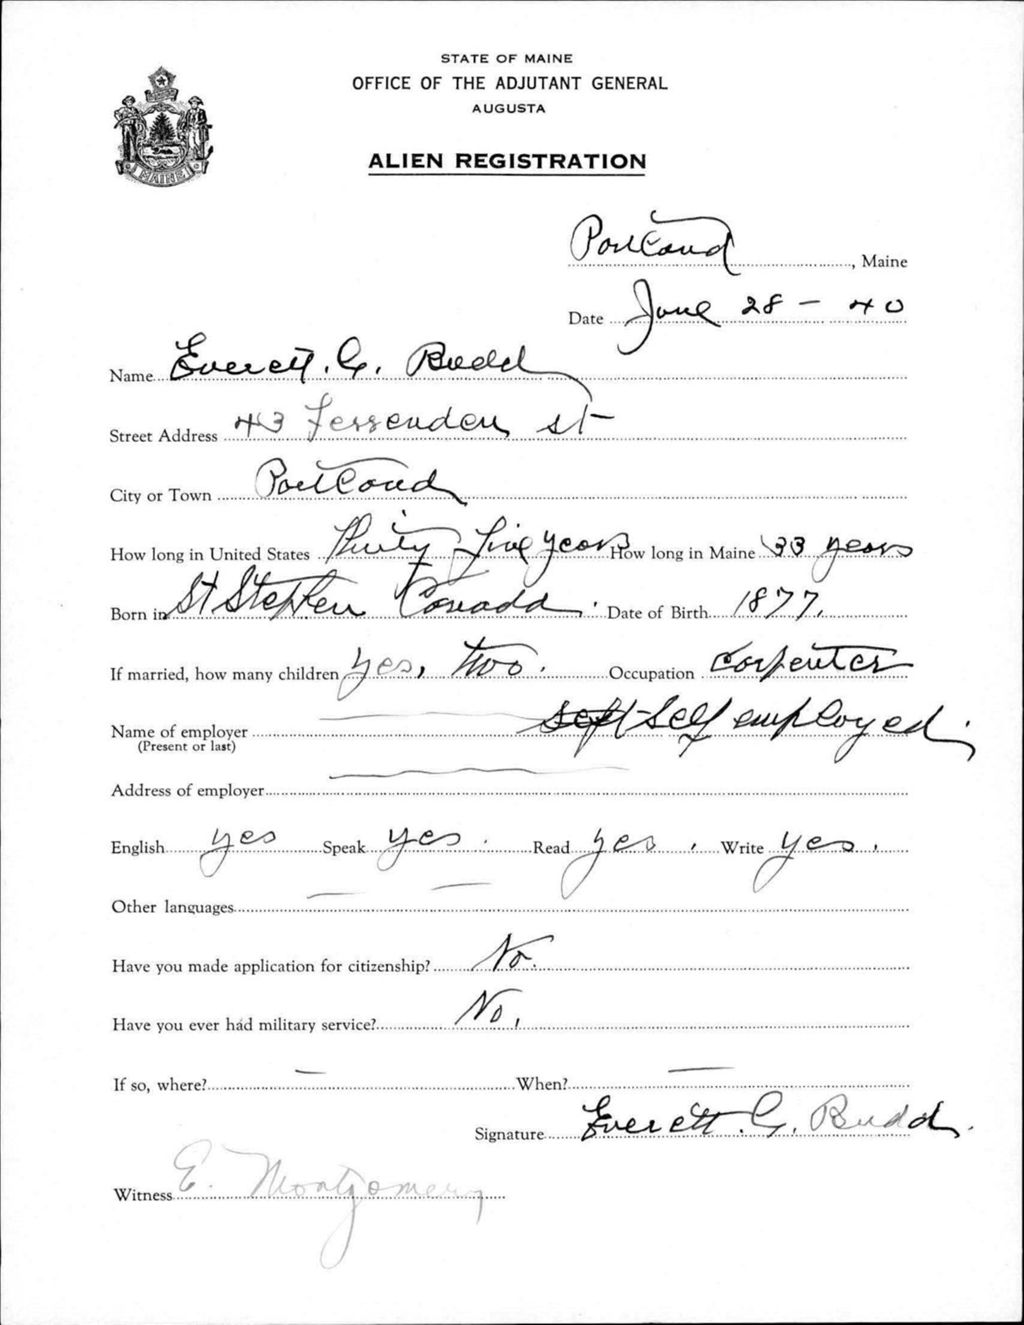 STATE OF MAINE
OFFICE OF THE ADJUTANT GENERAL
AUGUSTA
MAINE
ALIEN REGISTRATION
Portland, Maine
Date June 28 - 40
Name Everett. G. Budd
Street Address 43 Fessenden st
City or Town Portland
How long in United States Thirty Five years How long in Maine 33 years
Born in St Stephen Canada. Date of Birth 1877.
If married, how many children yes, two. Occupation Carpenter
Name of employer self Self employed.
(Present or last)
Address of employer
English yes Speak yes. Read yes. Write yes.
Other languages — —
Have you made application for citizenship? No.
Have you ever had military service? No.
If so, where? — When? —
Signature Everett. G. Budd.
Witness E. Montgomery